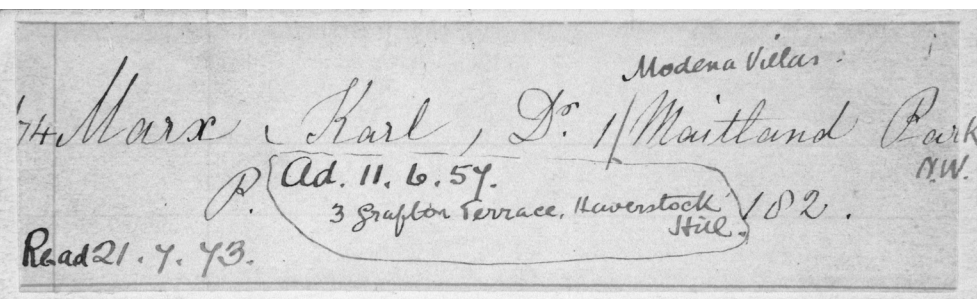 Modena Villas.
74 Marx, Karl, Dr. 1/ Maitland Park
N.W.
Ad. 11. 6. 57.
P. 182.
3 Grafton Terrace, Haverstock
Hill.
Read 21. 7. 73.